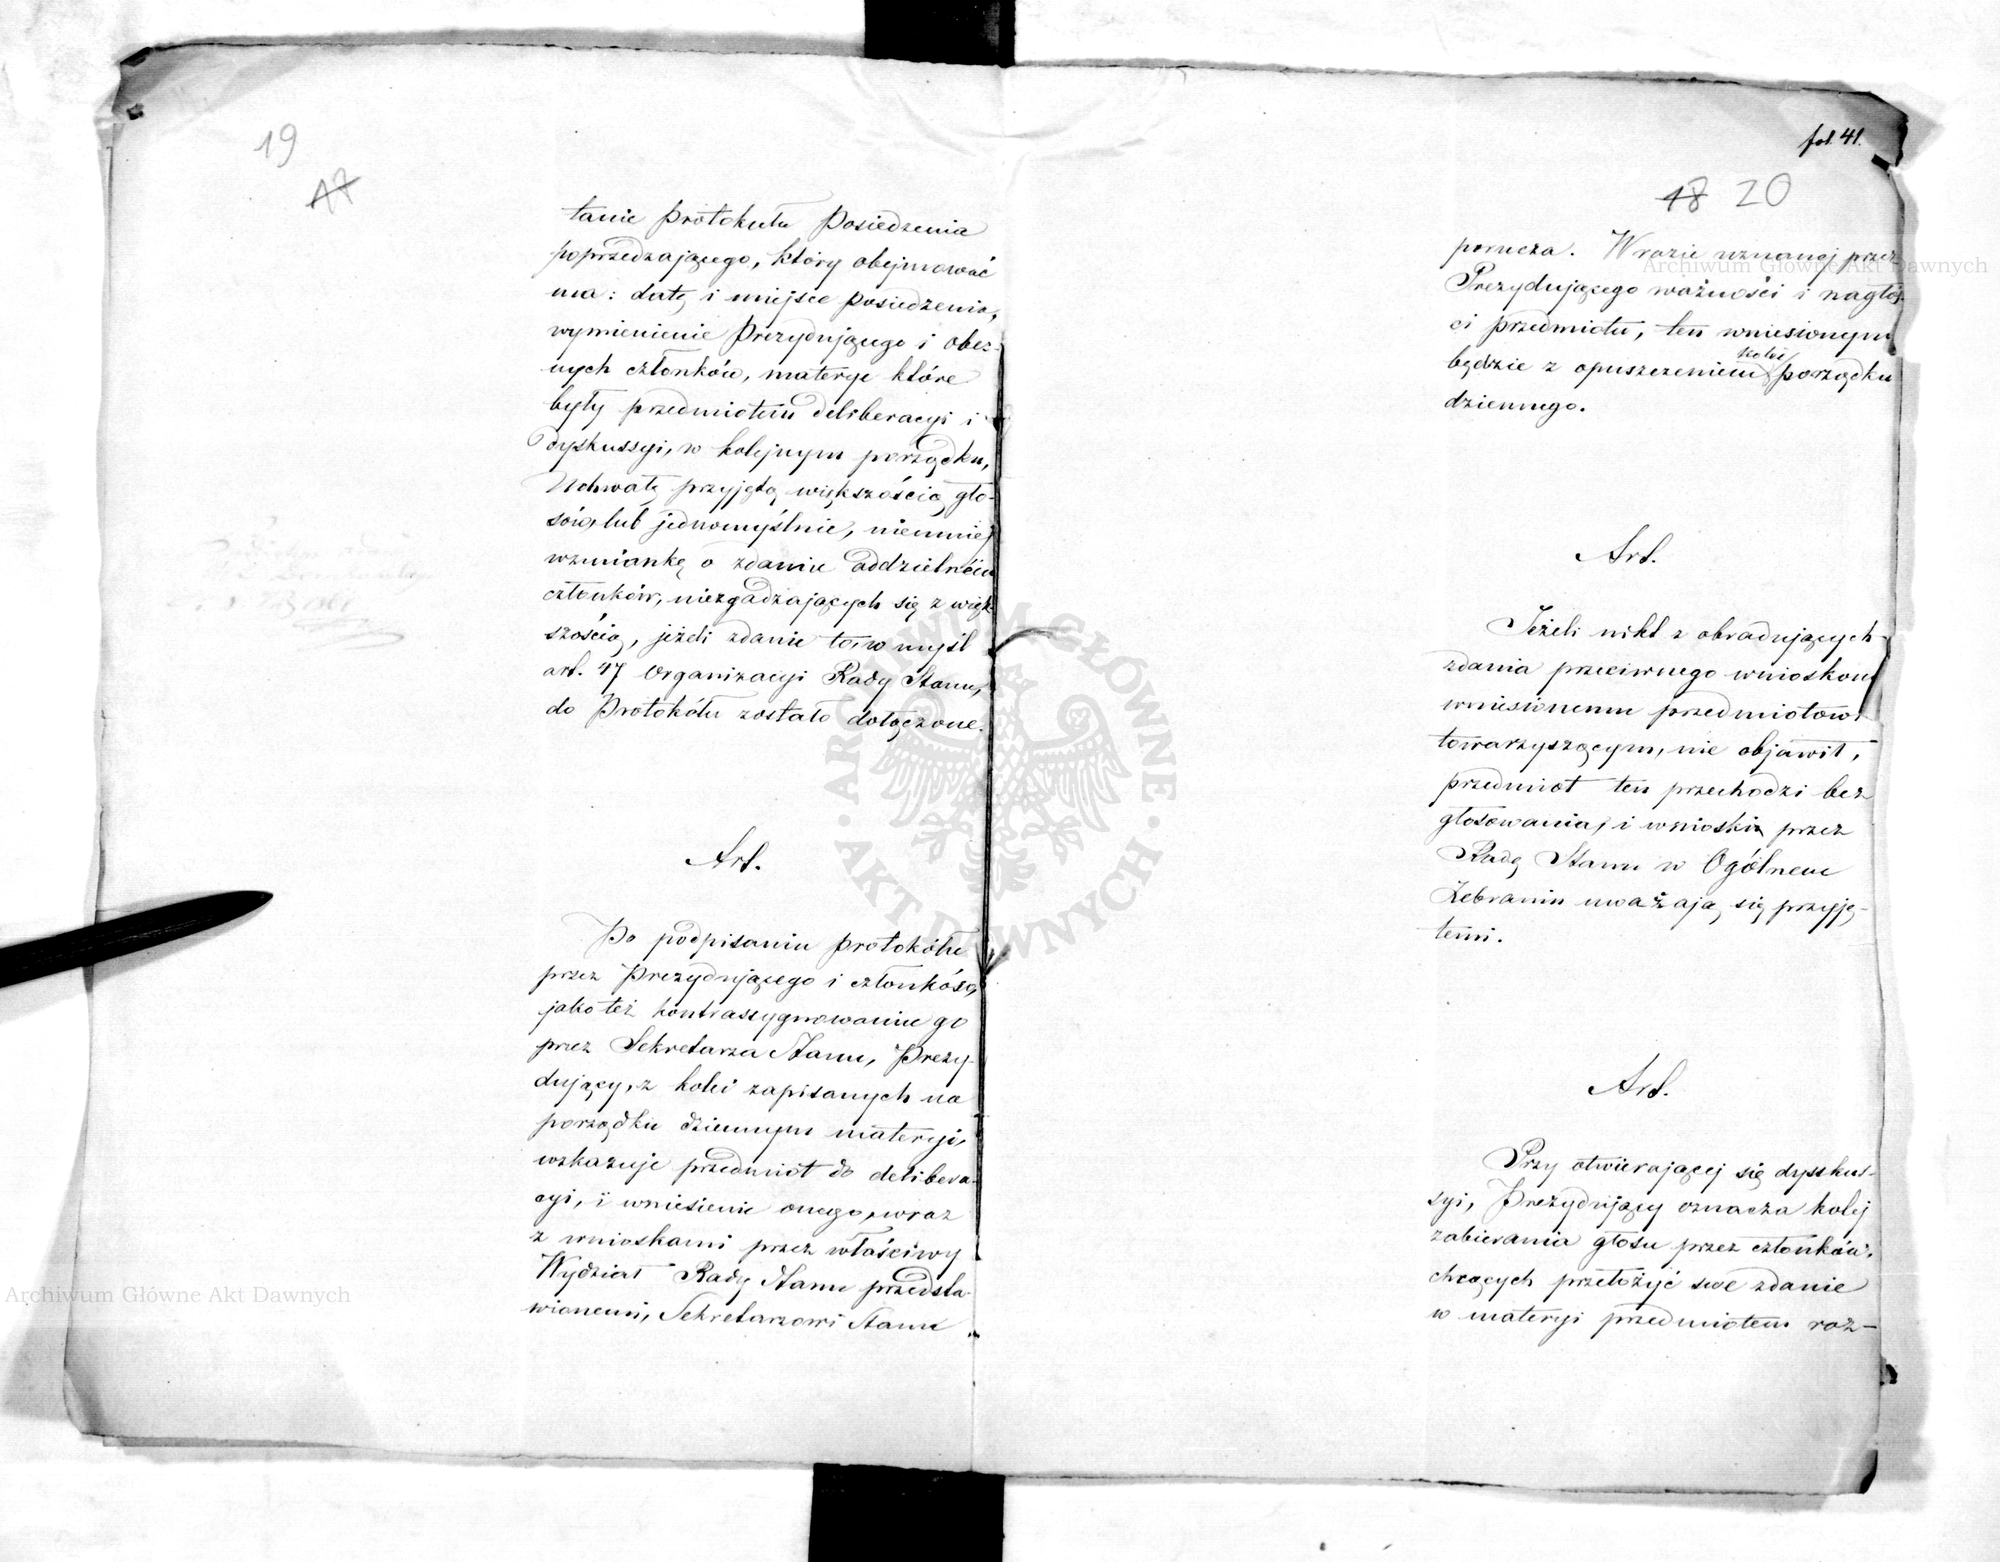 19
17
tanie Protokułu Posiedzenia
poprzedzającego, który obejmować
ma: datę i miejsce posiedzenia,
wymienienie Prezydującego i obec-
nych członków, materye które
były przedmiotem deliberacyi i
dyskussyi, w kolejnym porządku,
Uchwałę przyjętą większością gło-
sów lub jednomyślnie, niemniej
wzmiankę o zdaniu oddzielném
członków, niezgadzających się z więk
szością, jeżeli zdanie to, w myśl
art. 47 Organizacyi Rady Stanu,
do Protokółu zostało dołączone.
Art.
Po podpisaniu protokółu
przez Prezydującego i członków,
jako też kontrassygnowaniu go
przez Sekretarza Stanu, Prezy-
dujący, z kolei zapisanych na
porządku dziennym materyi,
wskazuje przedmiot do delibera-
cyi, i wniesienie onego, wraz
z wnioskami przez właściwy
Wydział Rady Stanu przedsta-
wionemi, Sekretarzowi Stanu
fol. 41.
18 20
porucza. W razie uznanej przez
Prezydującego ważności i nagłoś-
ci przedmiotu, ten wniesionym
będzie z opuszczeniem kolei porządku
dziennego.
Art.
Jeżeli nikt z obradujących
zdania przeciwnego wnioskom
wniesionemu przedmiotowi
towarzyszącym, nie objawił,
przedmiot ten przechodzi bez
głosowania, i wnioski przez
Radę Stanu w Ogólnem
Zebraniu uważają się przyję-
temi.
Art.
Przy otwierającej się dyskus-
syi, Prezydujący oznacza kolej
zabierania głosu przez członków,
chcących przełożyć swe zdanie
w materyi przedmiotem roz-
ARCHIWUM GŁÓWNE AKT DAWNYCH
Archiwum Główne Akt Dawnych
Archiwum Główne Akt Dawnych